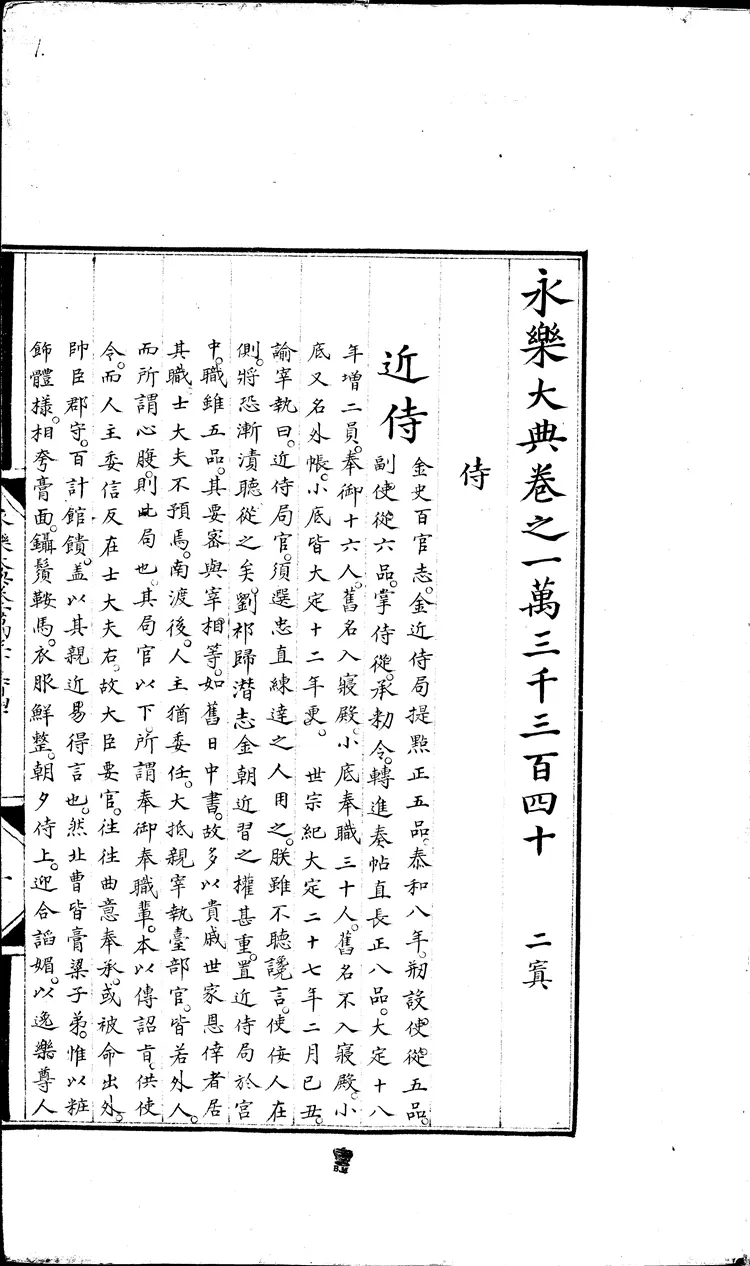 永樂大典卷之一萬三千三百四十 二寘
侍
近侍
金史百官志。金近侍局提點正五品。泰和八年。刱設使從五品。
副使從六品。掌侍從。承勑令。轉進奏帖直長正八品。大定十八
年增二員。奉御十六人。舊名入寢殿。小底奉職三十人。舊名不入寢殿。小
底又名外帳。小底皆大定十二年更。 世宗紀大定二十七年二月己丑。
諭宰執曰。近侍局官。須選忠直練達之人用之。朕雖不聽讒言。使佞人在
側。將恐漸漬聽從之矣。劉祁歸潛志金朝近習之權甚重。置近侍局於宮
中。職雖五品。其要密與宰相等。如舊日中書。故多以貴戚世家恩倖者居
其職士大夫不預焉。南渡後。人主猶委任。大抵視宰執臺部官。皆若外人。
而所謂心腹。則此局也。其局官以下。所謂奉御奉職輩。本以傳詔旨。供使
令。而人主委信反在士大夫右。故大臣要官。往往曲意奉承。或被命出外。
帥臣郡守。百計館饋。盖以其親近易得言也。然北曹皆膏粱子弟。惟以粧
飾體樣。相夸膏面。鑷鬚鞍馬。衣服鮮整。朝夕侍上。迎合諂媚。以逸樂尊人
1.